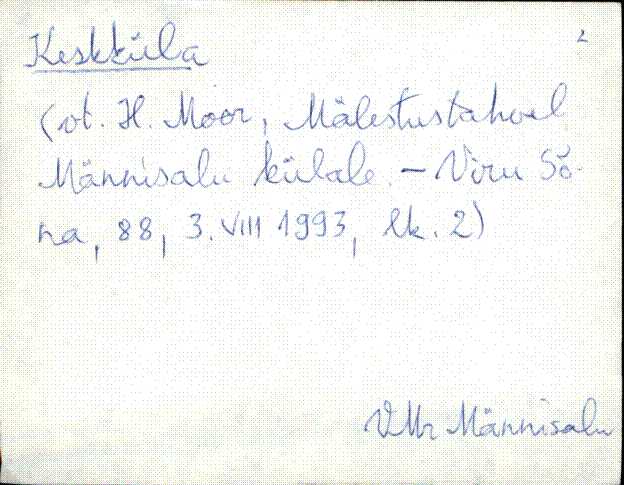 Keskküla
2
(vt. H. Moor, Mälestustahvel
Männisalu külale. – Viru Sõ-
na, 88, 3. VIII 1993, lk. 2)
VMr Männisalu